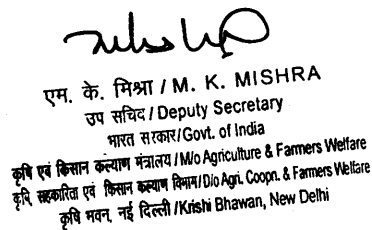 एम. के. मिश्रा / M. K. MISHRA
उप सचिव / Deputy Secretary
भारत सरकार/Govt. of India
कृषि एवं किसान कल्याण मंत्रालय/M/o Agriculture & Farmers Welfare
कृषि, सहकारिता एवं किसान कल्याण विभाग/D/o Agri. Coopn. & Farmers Welfare
कृषि भवन, नई दिल्ली/Krishi Bhawan, New Delhi